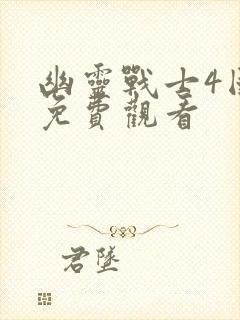 幽靈戰士4國
免費觀看
君墜